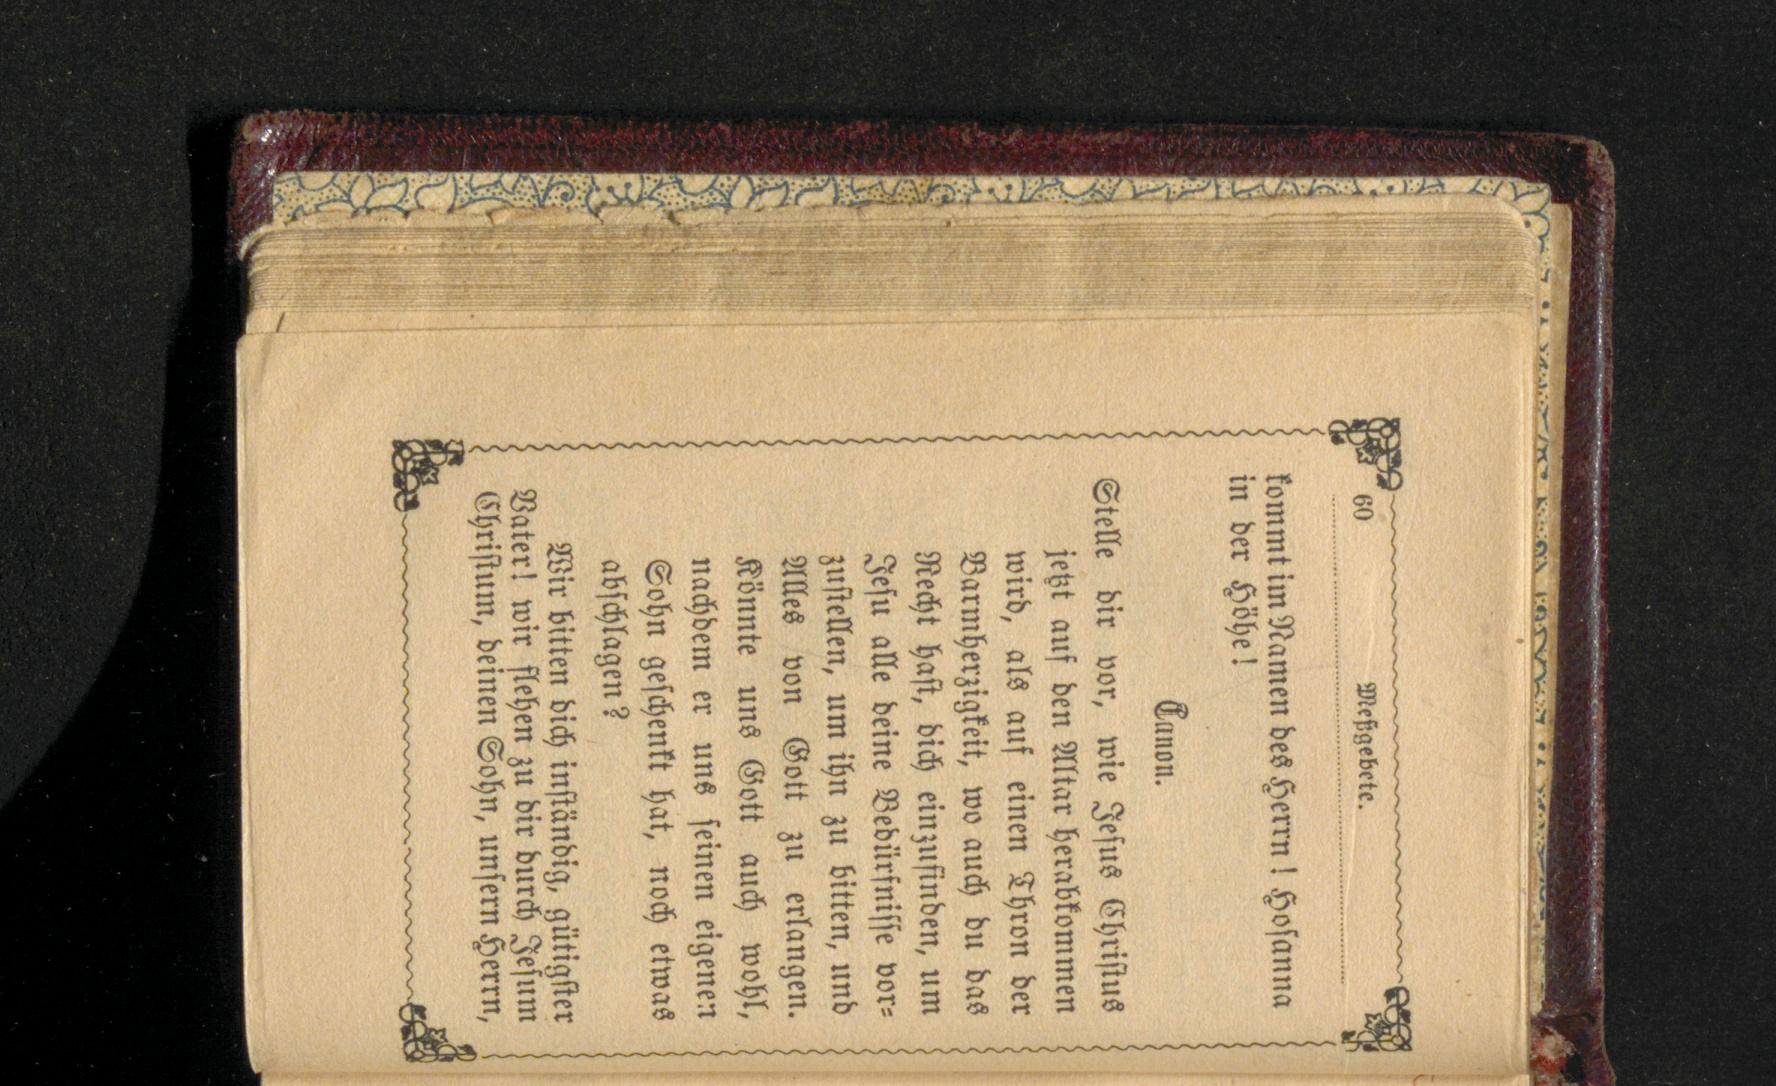 60 Meßgebete.
kommt im Namen des Herrn! Hosanna
in der Höhe!
Canon.
Stelle dir vor, wie Jesus Christus
jetzt auf den Altar herabkommen
wird, als auf einen Thron der
Barmherzigkeit, wo auch du das
Recht hast, dich einzufinden, um
Jesu alle deine Bedürfnisse vor=
zustellen, um ihn zu bitten, und
Alles von Gott zu erlangen.
Könnte uns Gott auch wohl,
nachdem er uns seinen eigenen
Sohn geschenkt hat, noch etwas
abschlagen?
Wir bitten dich inständig, gütigster
Vater! wir flehen zu dir durch Jesum
Christum, deinen Sohn, unsern Herrn,